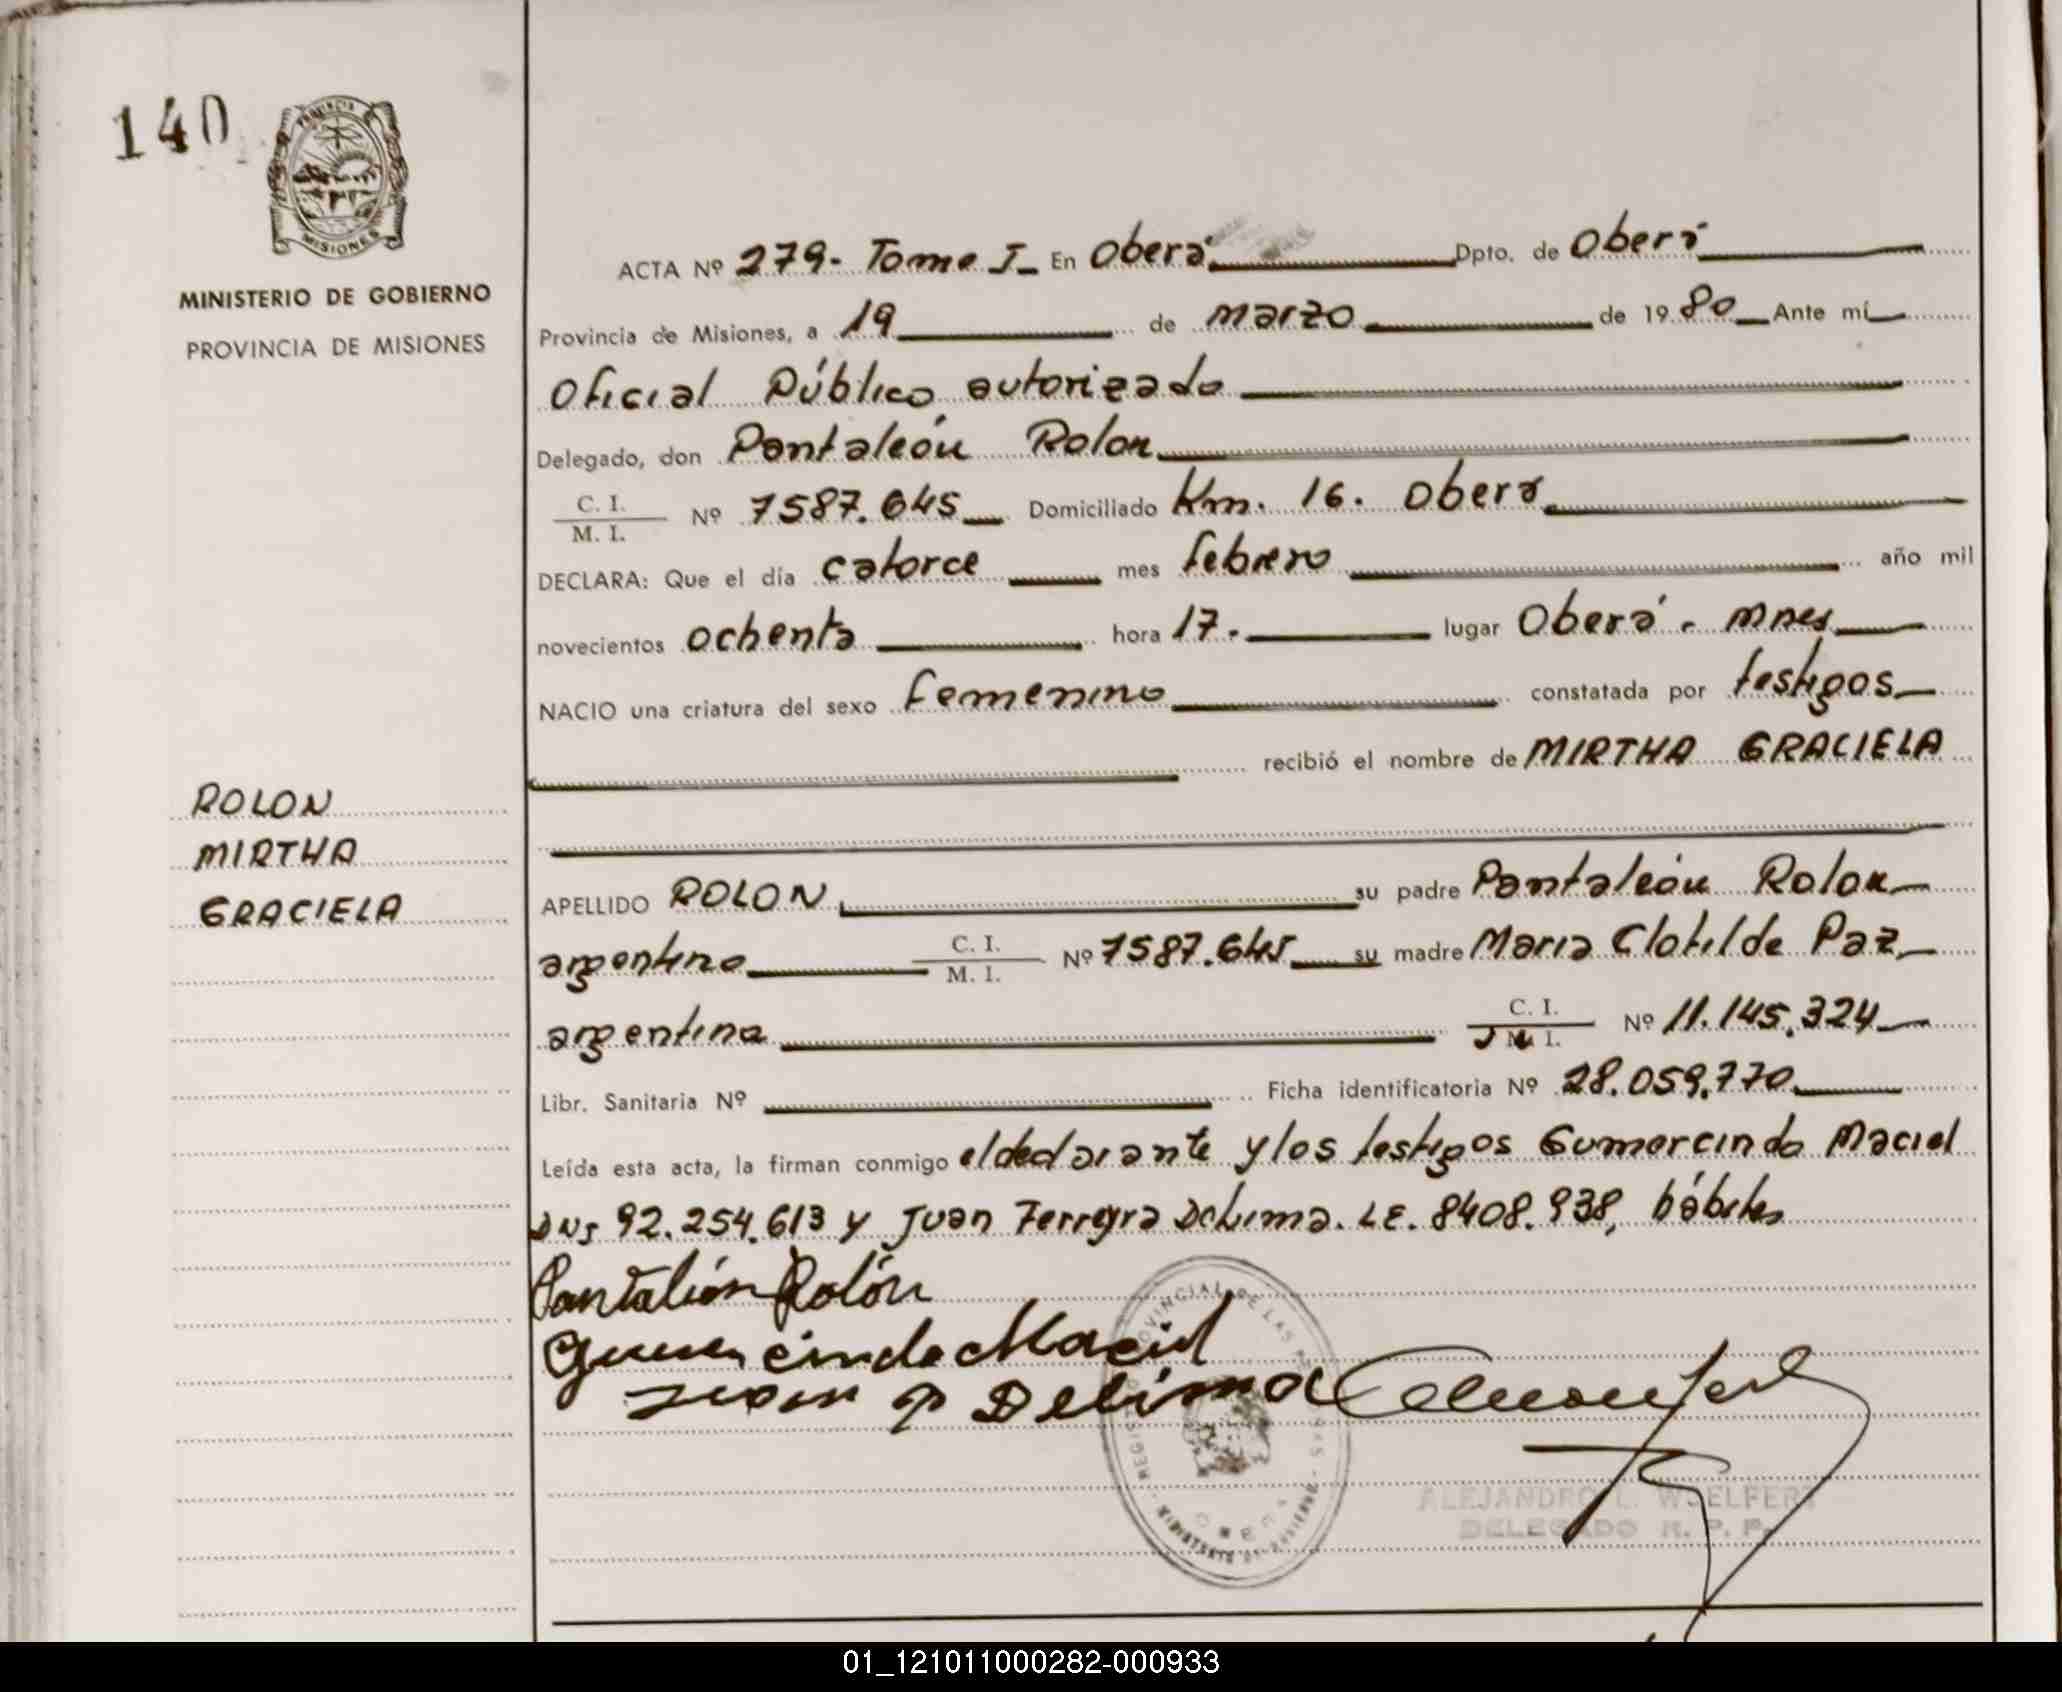 140
PROVINCIA
MISIONES
MINISTERIO DE GOBIERNO
PROVINCIA DE MISIONES
ACTA Nº 279- Tomo I_ En Oberá Dpto. de Oberá
Provincia de Misiones, a 19 de marzo de 1980 Ante mí
Oficial Público autorizado
Delegado, don Pantaleón Rolon
C. I. / M. I. Nº 7587.645 Domiciliado Km. 16. Oberá
DECLARA: Que el día catorce mes febrero año mil
novecientos ochenta hora 17. lugar Oberá. Mnes
NACIO una criatura del sexo femenino constatada por testigos
recibió el nombre de MIRTHA GRACIELA
ROLON
MIRTHA
GRACIELA
APELLIDO ROLON su padre Pantaleón Rolon
argentino C. I. / M. I. Nº 7587.645 su madre Maria Clotilde Paz
argentina C. I. / M. I. Nº 11.145.324
Libr. Sanitaria Nº Ficha identificatoria Nº 28.059.770
Leída esta acta, la firman conmigo el declarante y los testigos Gumercindo Maciel
DNI 92.254.613 y Juan Ferreyra Delima. LE. 8408.938, hábiles
Pantalión Rolón
Gumercindo Maciel
Juan F Delima
REGISTRO PROVINCIAL DE LAS PERSONAS
MINISTERIO DE GOBIERNO
OBERA
ALEJANDRO L. WOELFERT
DELEGADO R. P. P.
01_121011000282-000933